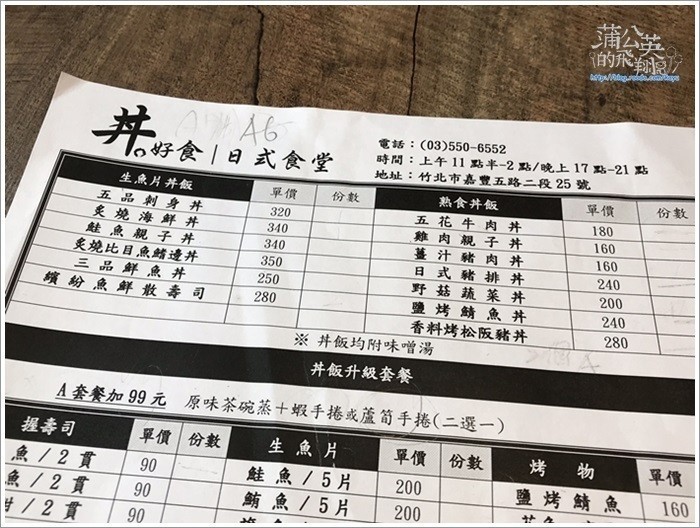 蒲公英
的飛翔
http://blog.xuite.net/
A6
丼。好食 | 日式食堂
電話：(03)550-6552
時間：上午11點半-2點/晚上17點-21點
地址：竹北市嘉豐五路二段25號
生魚片丼飯 單價 份數
五品刺身丼 320
炙燒海鮮丼 340
鮭魚親子丼 340
炙燒比目魚鰭邊丼 350
三品鮮魚丼 250
繽紛魚鮮散壽司 280
熟食丼飯 單價 份數
五花牛肉丼 180
雞肉親子丼 160
薑汁豬肉丼 160
日式豬排丼 240
野菇蔬菜丼 200
鹽烤鯖魚丼 240
香料烤松阪豬丼 280
※ 丼飯均附味噌湯
丼飯升級套餐
A 套餐加 99 元 原味茶碗蒸＋蝦手捲或蘆筍手捲(二選一)
握壽司 單價 份數
魚/2貫 90
魚/2貫 90
甜/2貫 90
生魚片 單價 份數
鮭魚/5片 200
鮪魚/5片 200
烤物 單價
鹽烤鯖魚 160